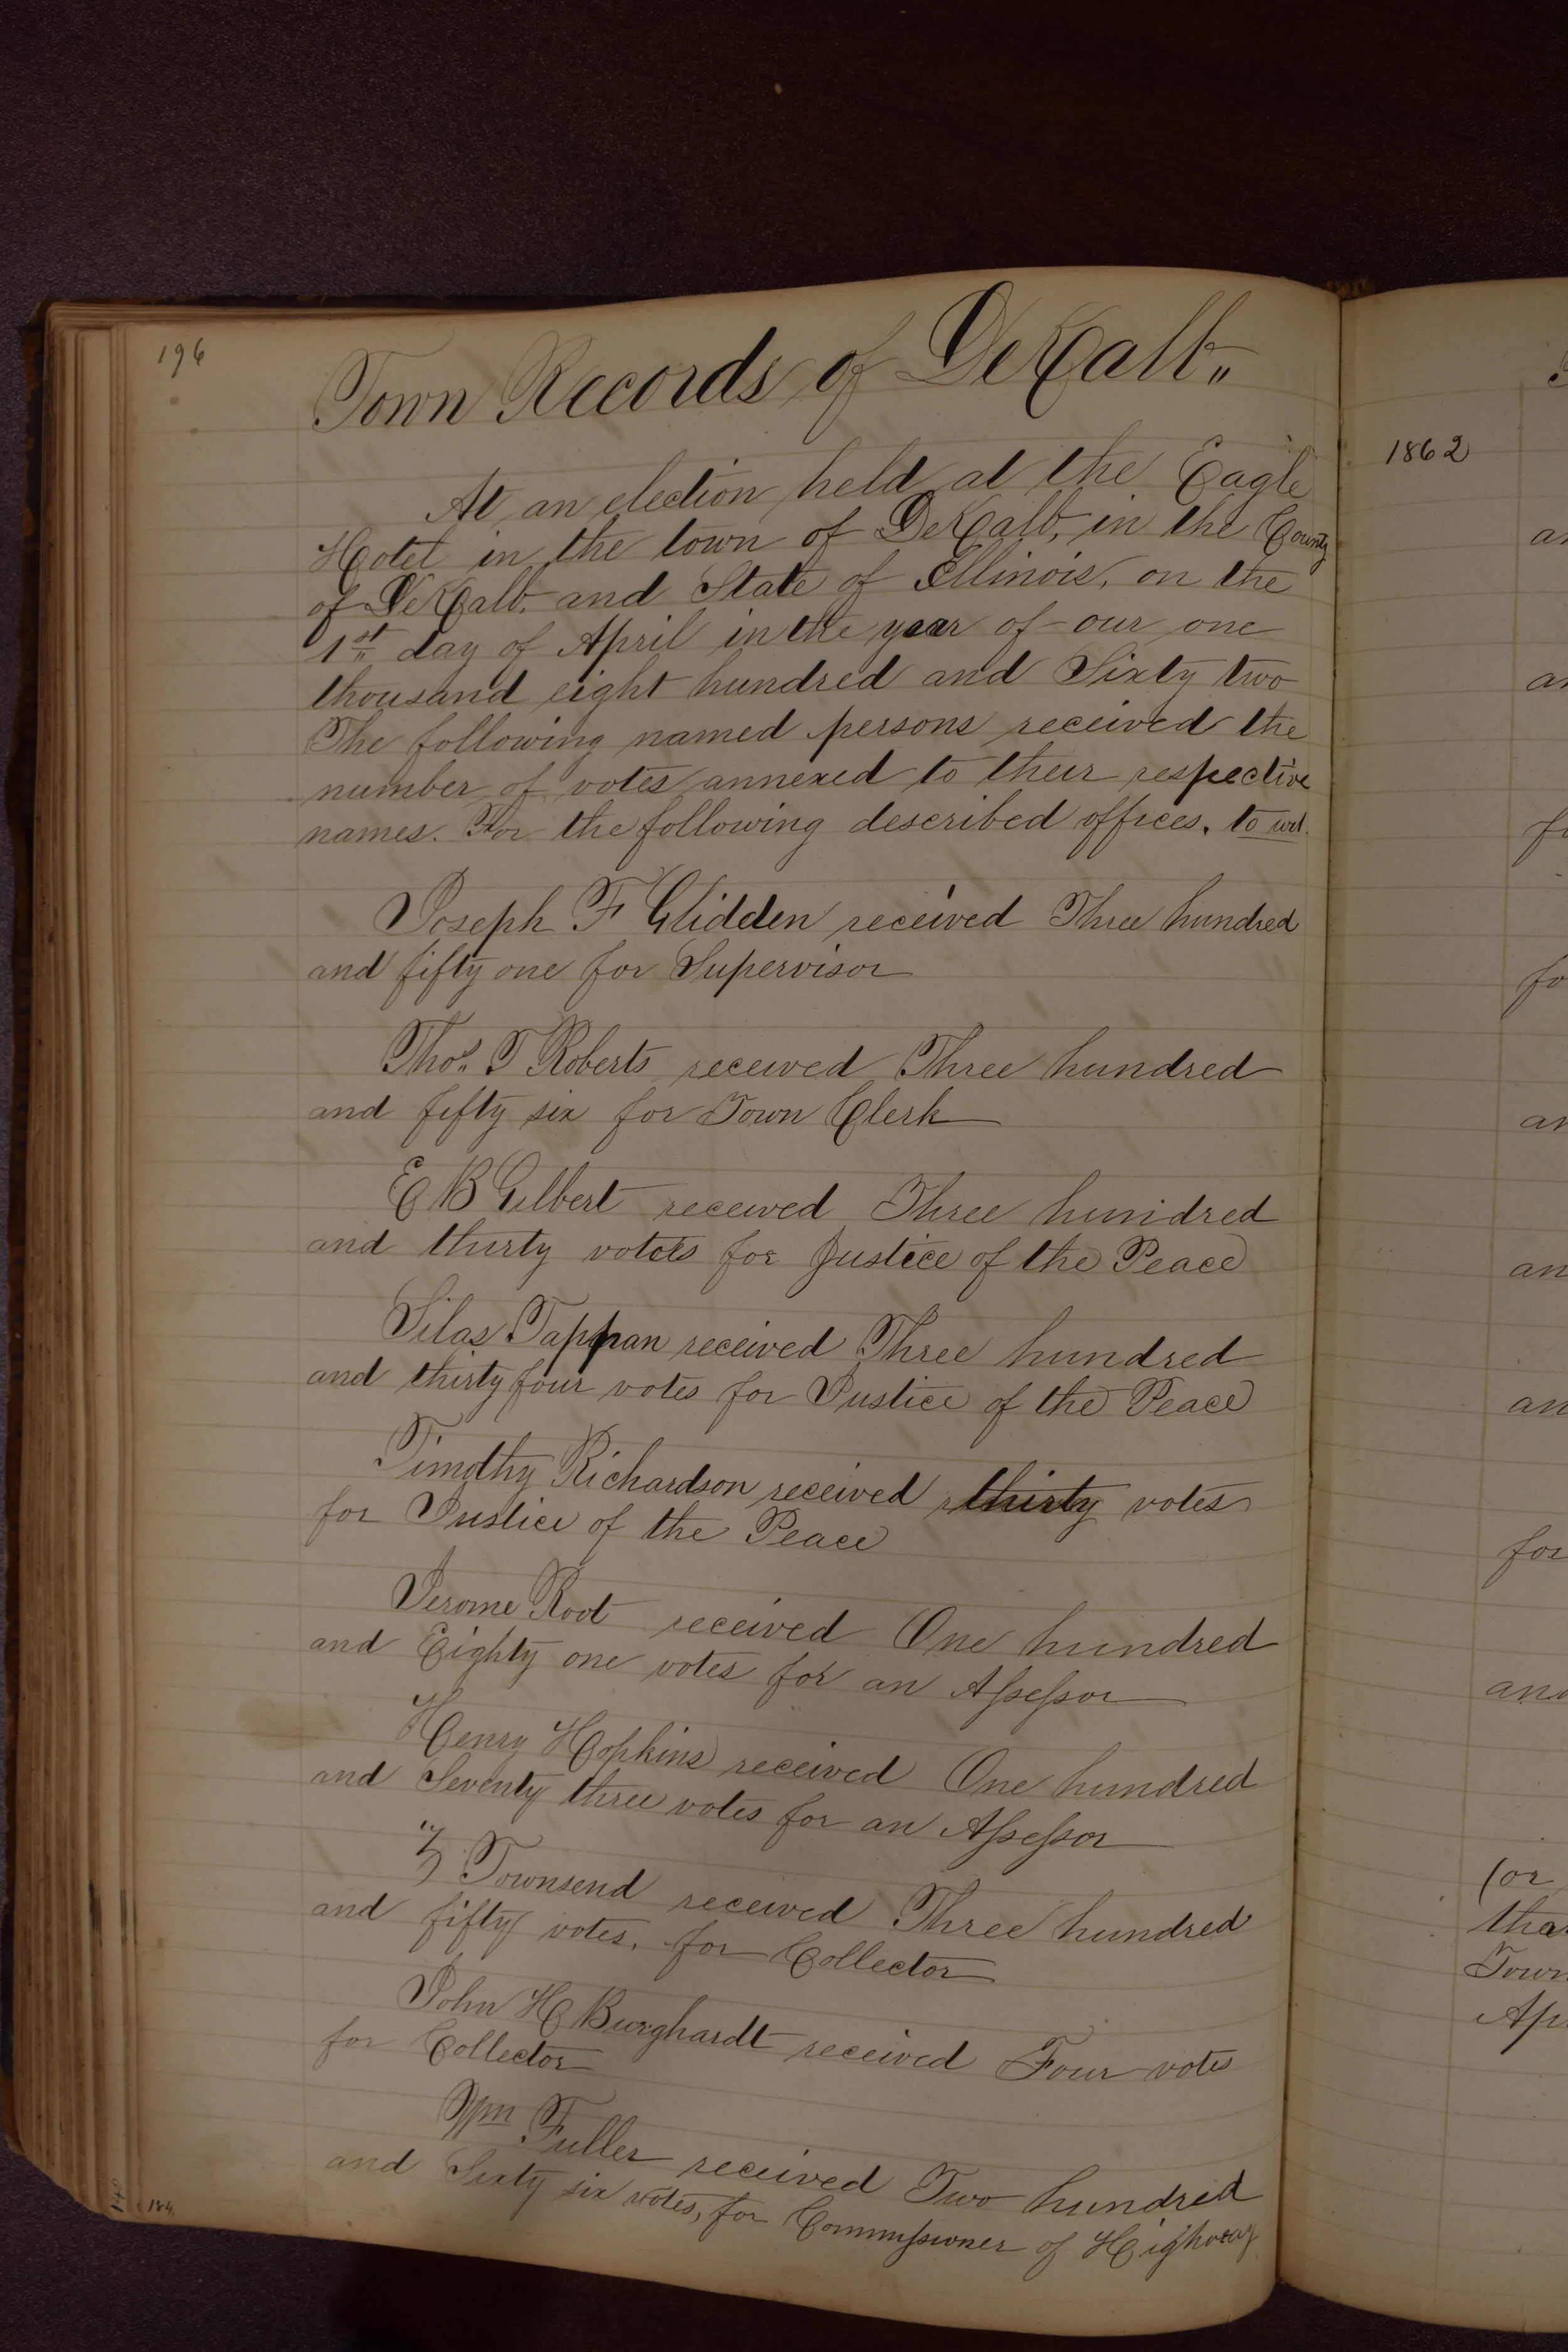 196
Town Records of DeKalb "
At an election held at the Eagle
Hotel in the town of DeKalb, in the County
of DeKalb, and State of Illinois, on the
1st day of April in the year of our one
thousand eight hundred and Sixty two
The following named persons received the
number of votes annexed to their respective
names. For the following described offices, to wit.
Joseph F Glidden received Three hundred
and fifty one for Supervisor
Thos. T Roberts received Three hundred
and fifty six for Town Clerk
E B Gilbert received Three hundred
and thirty votes for Justice of the Peace
Silas Tappan received Three hundred
and thirty four votes for Justice of the Peace
Timothy Richardson received thirty votes
for Justice of the Peace
Jerome Root received One hundred
and Eighty one votes for an Assessor
Henry Hopkins received One hundred
and Seventy three votes for an Assessor
Z Townsend received Three hundred
and fifty votes, for Collector
John H Burghardt received Four votes
for Collector
Wm Fuller received Two hundred
and Sixty six votes, for Commissioner of Highway
184
1862
an
an
for
for
an
an
an
for
and
(or
tha
Town
Ap